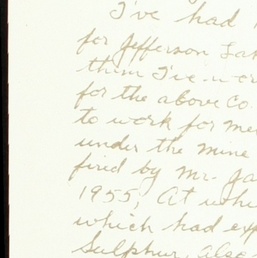 I've had
for Jefferson Lak
them I've wor
for the above Co.
to work for me
under the mine
fired by Mr. Ja
1955, At whi
which had exp
Sulphur. Also